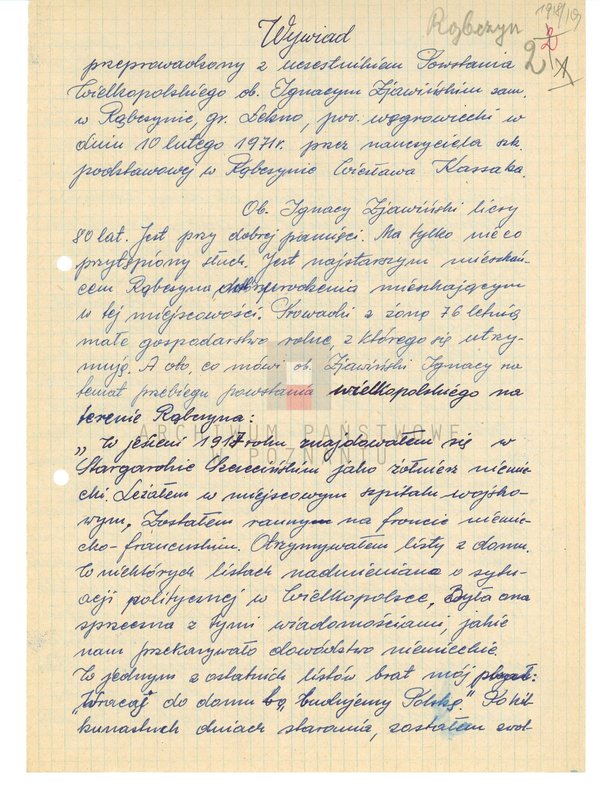 Rąbczyn
1918/19
2
2
Wywiad
przeprowadzony z uczestnikiem Powstania
Wielkopolskiego ob. Ignacym Zjawińskim zam.
w Rąbczynie, gr. Lekno, pow. wągrowiecki w
dniu 10 lutego 1971r. przez nauczyciela szk.
podstawowej w Rąbczynie Wiesława Kassaka.
Ob. Ignacy Zjawiński liczy
80 lat. Jest przy dobrej pamięci. Ma tylko nieco
przytępiony słuch. Jest najstarszym mieszkań-
cem Rąbczyna, urodzenia mieszkającym
w tej miejscowości. Prowadzi z żoną 76 letnią
małe gospodarstwo rolne, z którego się utrzy-
mują. A oto, co mówi ob. Zjawiński Ignacy na
temat przebiegu powstania wielkopolskiego na
terenie Rąbczyna:
ARCHIWUM PAŃSTWOWE
W POZNANIU
„W jesieni 1917 roku znajdowałem się w
Stargardzie Szczecińskim jako żołnierz niemie-
cki. Leżałem w miejscowym szpitalu wojsko-
wym. Zostałem rannym na froncie niemie-
cko-francuskim. Otrzymywałem listy z domu.
W niektórych listach nadmieniano o sytu-
acji politycznej w Wielkopolsce. Była ona
sprzeczna z tymi wiadomościami, jakie
nam przekazywało dowództwo niemieckie.
W jednym z ostatnich listów brat mój pisał:
"Wracaj do domu bo, budujemy Polskę." Po kil-
kunastu dniach starania, zostałem zwol-